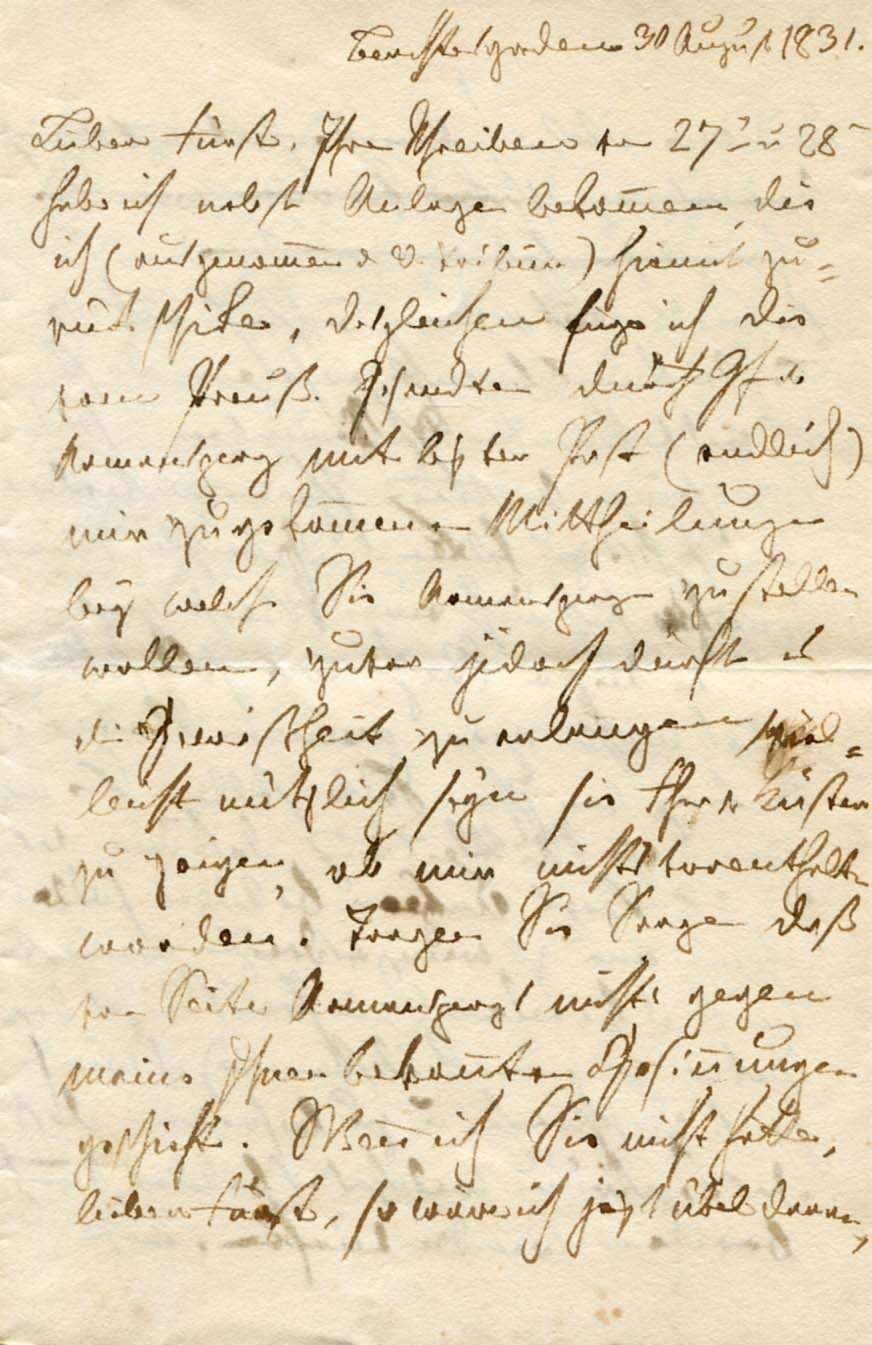 Berchtesgaden 30 August 1831.
Lieber Fürst. Ihre Schreiben von 27 u 28
habe ich nebst Anlagen bekom̅en, die
ich (ausgenom̅en d. Tribun) hiemit zu=
rück schicke, desgleichen füge ich die
vom Preuß. Gesandten durch Gfen
Armansperg mit letzter Post (endlich)
mir zugekom̅enen Mittheilungen
bey welche Sie Armansperg zustellen
wollen, zuvor jedoch dürfte es
die Gewißheit zu erlangen viel=
leicht nützlich seyn sie Küster
zu zeigen, ob mir nichts vorenthalten
worden. Tragen Sie Sorge daß
von Seite Armanspergs nichts gegen
meine Ihnen bekan̅ten Gesin̅ungen
geschieht. Wen̅ ich Sie nicht hätte,
lieber Fürst, so wäre ich jetzt übel daran,